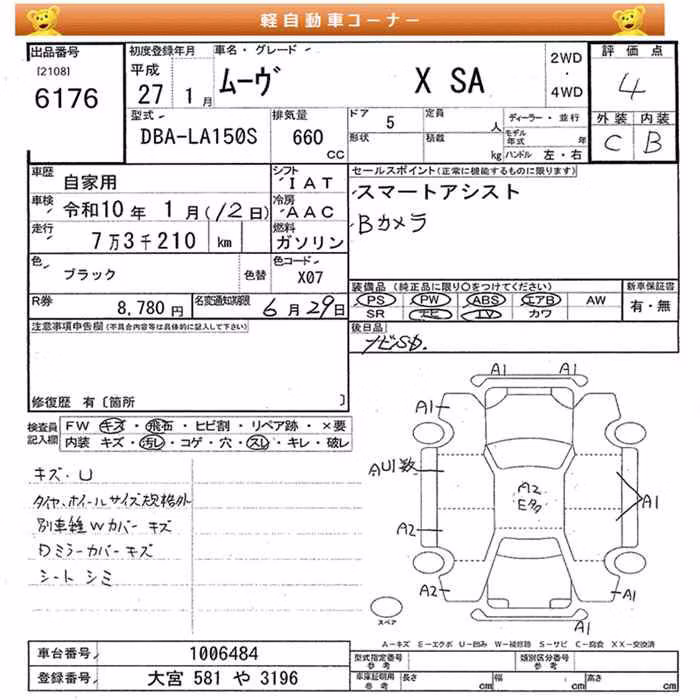 軽自動車コーナー
出品番号
[2108]
6176
初度登録年月
平成
27 1月
車名・グレード
ムーヴ X SA
2WD
・
4WD
評価点
4
外装 内装
C B
型式
DBA-LA150S
排気量
660
CC
ドア 5
定員 人
形状
積載 kg
ディーラー・並行
モデル年式 年
ハンドル 左・右
車歴
自家用
シフト
IAT
車検 令和10年 1月(12日)
冷房
AAC
走行
7万3千210 km
燃料
ガソリン
色
ブラック
色替
色コード
X07
R券
8,780円
名変通知期限 6月29日
セールスポイント(正常に機能するものに限ります)
スマートアシスト
Bカメラ
装備品 (純正品に限り○をつけてください)
新車保証書
PS PW ABS エアB AW
SR ナビ TV カワ
有・無
後日品
ナビSD.
注意事項申告欄(不具合内容等は具体的に記入して下さい)
修復歴 有〔箇所 〕
検査員
記入欄
FW キズ・飛石・ヒビ割・リペア跡・×要
内装 キズ・汚レ・コゲ・穴・スレ・キレ・破レ
キズ・U
タイヤ、ホイールサイズ規格外
別車種Wカバーキズ
Dミラーカバーキズ
シートシミ
A1 A1
A1
AU1数
A2
Eタ
A1
A2
A2
A1
A1
スペア
A-キズ E-エクボ U-凹み W-補修跡 S-サビ C-腐食 XX-交換済
車台番号 1006484
登録番号 大宮 581 や 3196
型式指定番号
参考
類別区分番号
参考
車庫証明用
参考
長さ cm
幅 cm
高さ cm